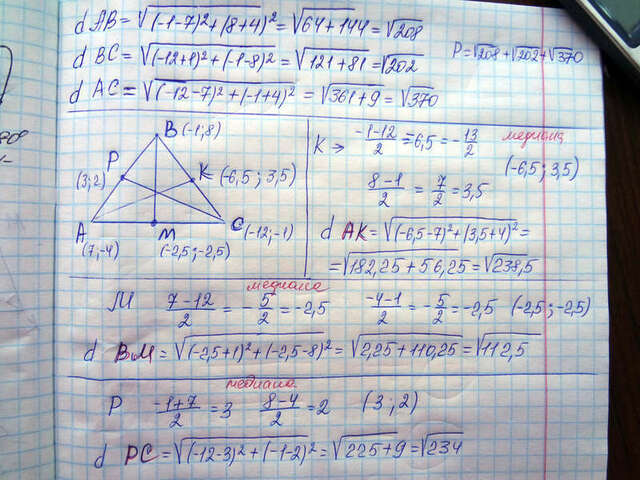 d AB = √(-1-7)²+(8+4)² = √64+144 = √208
d BC = √(-12+1)²+(-1-8)² = √121+81 = √202
P=√208+√202+√370
d AC = √(-12-7)²+(-1+4)² = √361+9 = √370
B (-1;8)
P (3;2)
K (-6,5; 3,5)
A (7;-4)
M (-2,5;-2,5)
C (-12;-1)
K → (-1-12)/2 = -6,5 = -13/2 медиана
(8-1)/2 = 7/2 = 3,5 (-6,5; 3,5)
d AK = √(-6,5-7)²+(3,5+4)² =
= √182,25+56,25 = √238,5
медиана
M (7-12)/2 = -5/2 = -2,5 (-4-1)/2 = -5/2 = -2,5 (-2,5;-2,5)
d BM = √(-2,5+1)²+(-2,5-8)² = √2,25+110,25 = √112,5
медиана
P (-1+7)/2 = 3 (8-4)/2 = 2 (3;2)
d PC = √(-12-3)²+(-1-2)² = √225+9 = √234